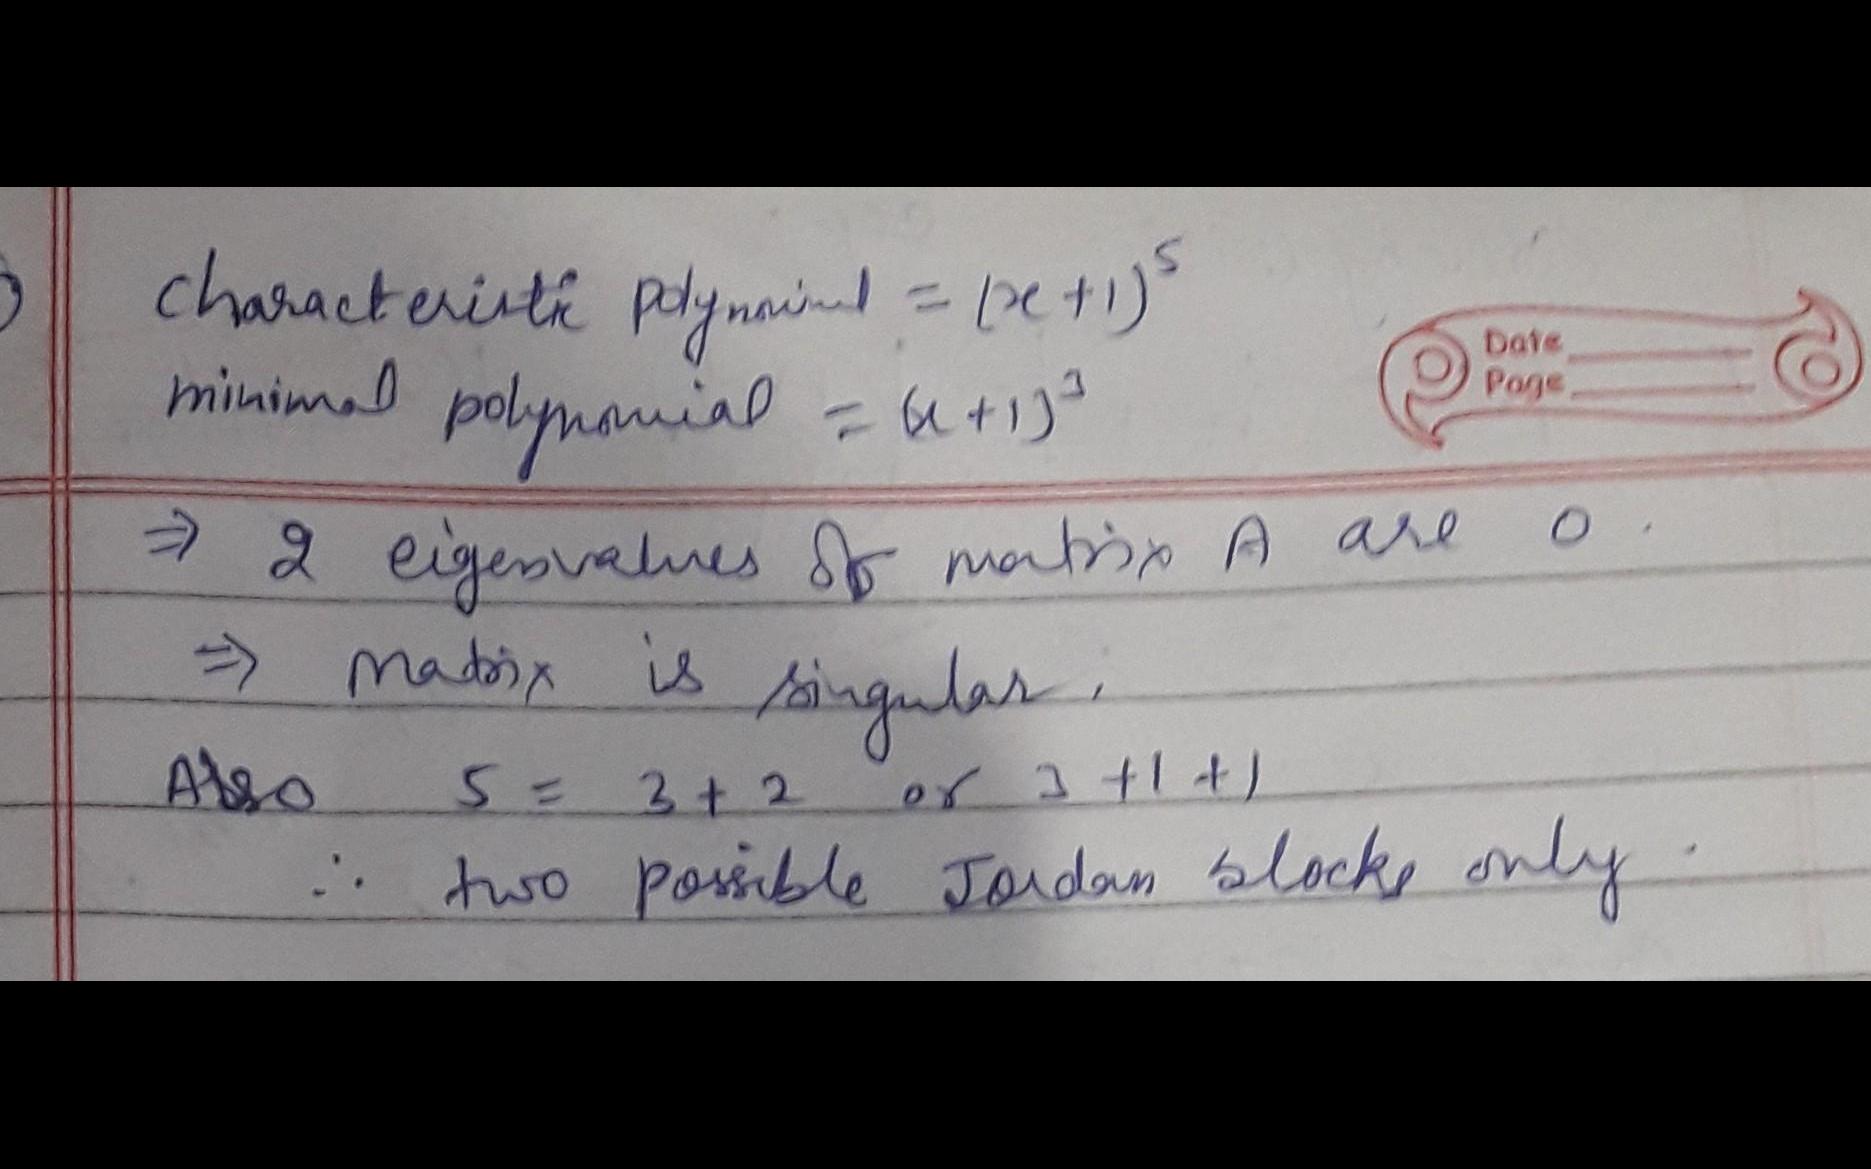 characteristic polynomial = (x+1)^5
Date
Page
minimal polynomial = (x+1)^3
⇒ 2 eigenvalues of matrix A are 0.
⇒ Matrix is singular.
Also 5 = 3+2 or 3+1+1
∴ two possible Jordan blocks only.